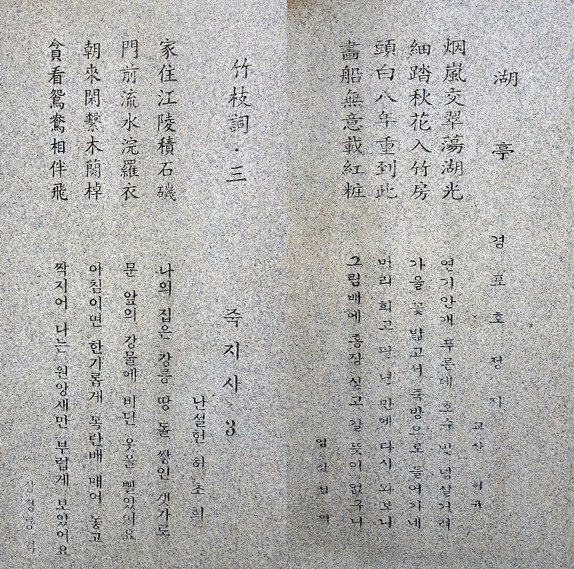 湖亭
烟嵐交翠蕩湖光
細踏秋花入竹房
頭白八年重到此
畵船無意載紅粧
경포호정자
교산 허균
연기안개 푸른데 호수 빛 넘실거려
가을 꽃 밟고서 죽방으로 들어가네
머리 희고 팔 년 만에 다시 와보니
그림배에 홍장 싣고 갈 뜻이 없구나
竹枝詞·三
家住江陵積石磯
門前流水浣羅衣
朝來閑繫木蘭棹
貪看鴛鴦相伴飛
죽지사 3
난설헌 허초희
나의 집은 강릉 땅 돌 쌓인 갯가로
문 앞의 강물에 비단 옷을 빨았어요
아침이면 한가롭게 목란배 매어 놓고
짝지어 나는 원앙새만 부럽게 보았어요